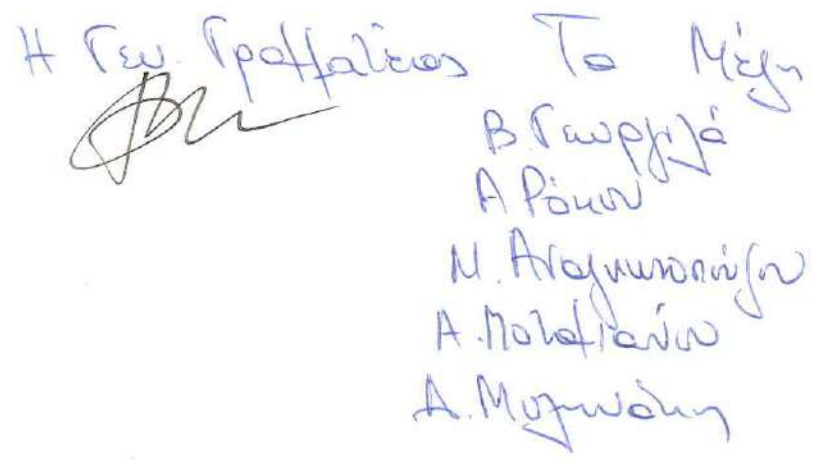 Η Γεν. Γραμματέας Τα Μέλη
Β Γεωργιλά
Α Ρόκου
Μ. Αναγνωστοπούλου
Α. Ποταμιάνου
Δ. Μυλωνάκη